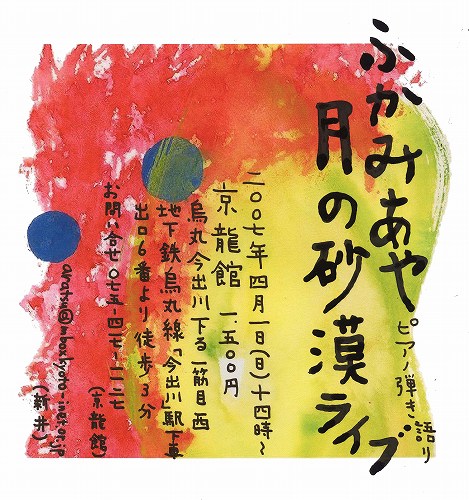 ふかみあや
ピアノ弾き語り
月の砂漠ライブ
二〇〇七年四月一日(日)十四時〜
京龍館 一五〇〇円
烏丸今出川下る一筋目西
地下鉄烏丸線「今出川」駅下車
出口6番より徒歩3分
お問い合せ〇七五-四一七-一二一七
(京龍館)
(新井)